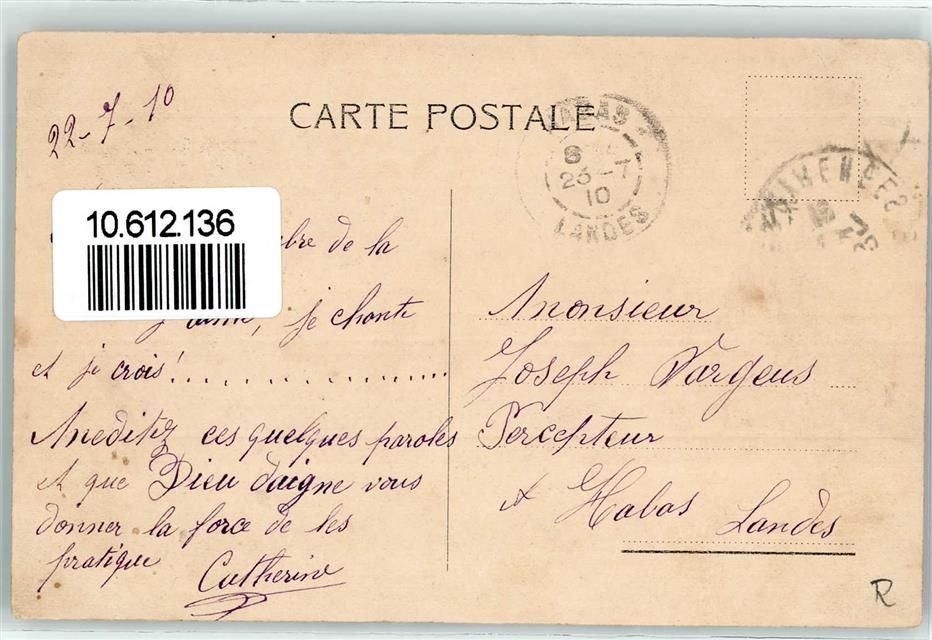 22-7-10
CARTE POSTALE
HABAS
23-7
10
LANDES
10.612.136
de la
j'aime, je chante
et je crois!
Méditez ces quelques paroles
et que Dieu daigne vous
donner la force de les
pratique
Catherine
Monsieur
Joseph Vargeus
Percepteur
A Habas
Landes
R